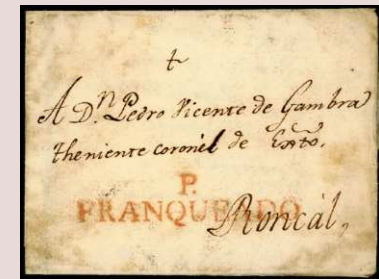 †
A D.ⁿ Pedro Vicente de Gambra
theniente coronél de Exto.
P.
FRANQUEADO
Roncál,